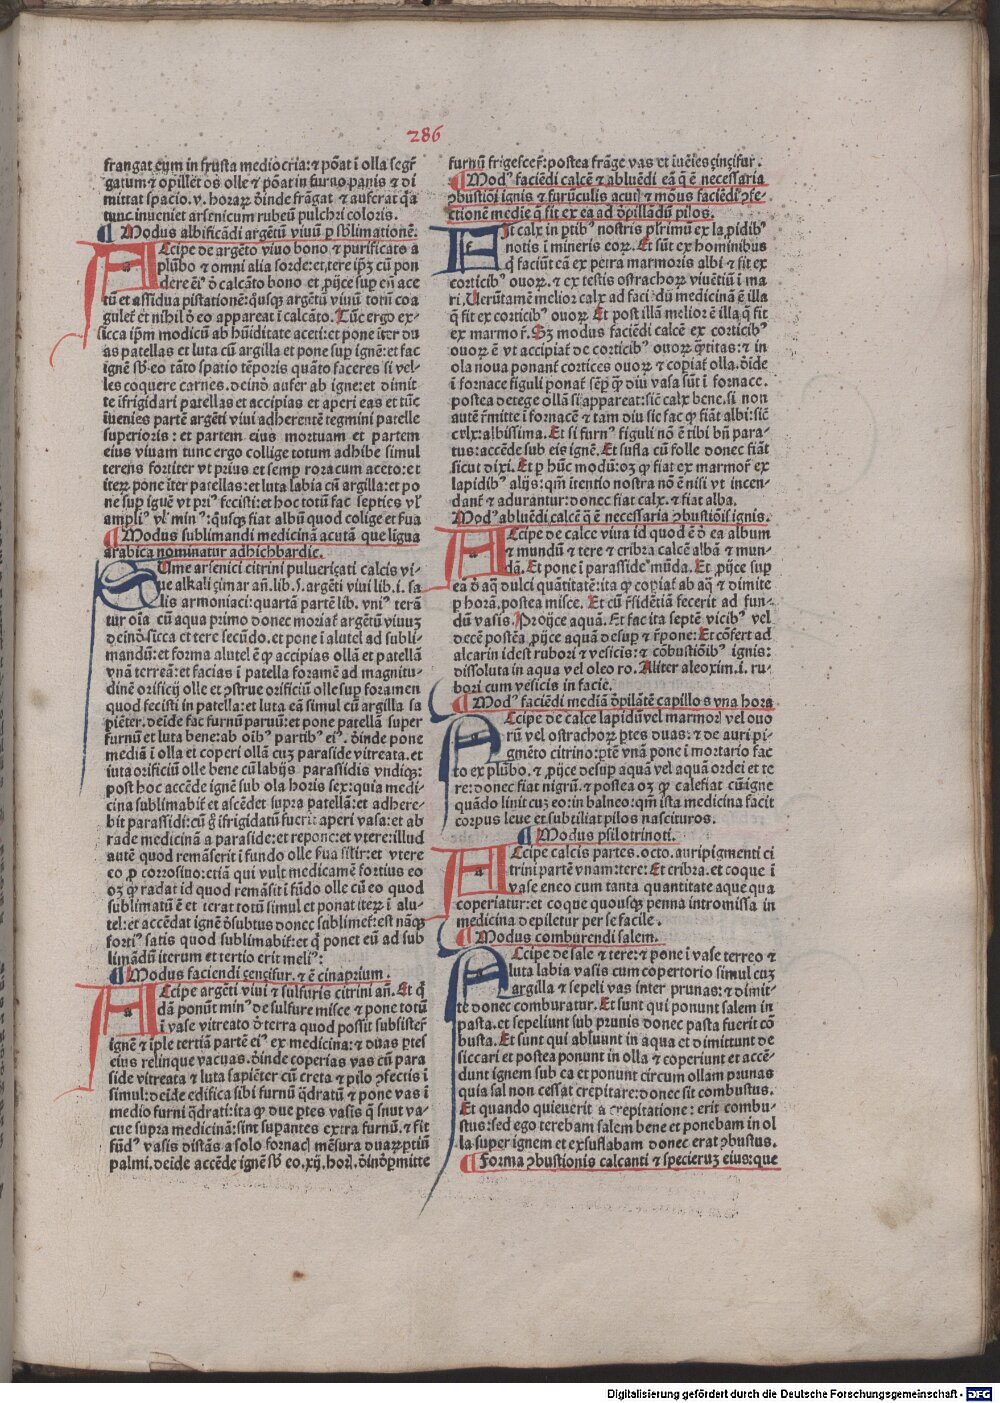 286
frangat eum in frusta mediocria: ⁊ põat ĩ olla segr̃
gatum ⁊ opillet os olle ⁊ põat in furno panis ⁊ di
mittat spacio .v. horaꝝ ꝺinde frãgat ⁊ auferat q̃a
tunc inueniet arsenicum rubeũ pulchri coloris.
¶ Modus albificãdi argẽtũ viuũ ꝑ sb̃limationẽ.
ACcipe de argẽto viuo bono ⁊ purificato a
plũbo ⁊ omni alia sorde: et tere ip̃ꝫ cũ pon
dere eiꝰ ꝺ calcãto bono et ꝓijce suꝑ eũ ace
tũ et assidua pistatione: quusqꝫ argẽtũ viuũ totũ coa
gulet̃ et nihil ꝺ eo appareat ĩ calcãto. Tũc ergo ex-
sicca ip̃m modicũ ab hũiditate aceti: et pone iter du
as patellas et luta cũ argilla et pone suꝑ ignẽ: et fac
ignẽ sb̃ eo tãto spatio tẽporis quãto faceres si vel-
les coquere carnes. deinꝺ aufer ab igne: et dimit
te ĩfrigidari patellas et accipias et aperi eas et tũc
ĩuenies partẽ argẽti viui adherentẽ tegmini patelle
superioris: et partem eius mortuam et partem
eius viuam tunc ergo collige totum adhibe simul
terens fortiter vt prius et semꝑ rora cum aceto: et
iteꝝ pone iter patellas: et luta labia cũ argilla: et po
ne suꝑ iguẽ vt priꝰ fecisti: et hoc totũ fac septies vl̃
ampliꝰ vl̃ minꝰ: quusqꝫ fiat albũ quod colige et sua
¶ Modus sublimandi medicinã acutã que ligua
arabica nominatur adhichbardic.
SUme arsenici citrini puluerizati calcis vi-
ue alkali zimar añ. lib. s. argẽti viui lib. i. sa
lis armoniaci: quartã partẽ lib. vniꝰ terã
tur oĩa cũ aqua primo donec moriat̃ argẽtũ viuuꝫ
deinꝺ sicca et tere secũdo. et pone ĩ alutel ad subli-
mandũ: et forma alutel ẽ ꝙ accipias ollã et patellã
vnã terreã: et facias ĩ patella foramẽ ad magnitu-
dinẽ orificij olle et ꝯstrue orificiũ olle sup foramen
quod fecisti in patella: et luta eã simul cũ argilla sa
piẽter. deide fac furnũ paruũ: et pone patellã super
furnũ et luta bene: ab oibꝰ partibꝰ eiꝰ. ꝺinde pone
mediã ĩ olla et coperi ollã cuꝫ paraside vitreata. et
iuta orificiũ olle bene cũ labijs parassidis vndiqꝫ:
post hoc accẽde ignẽ sub ola horis sex: quia medi-
cina sublimabit̃ et ascẽdet supra patellã: et adhere-
bit parassidi: cũ g̃ ifrigidatũ fuerit aperi vasa: et ab
rade medicinã a paraside: et repone: et vtere: illud
autẽ quod remãserit ĩ fundo olle sua sil̃ir: et vtere
eo ꝓ corrosiuo: etiã qui vult medicamẽ fortius eo
oꝫ ꝙ radat id quod remãsit ĩ fũdo olle cũ eo quod
sublimatũ ẽ et terat totũ simul et ponat iteꝝ ĩ alu-
tel: et accẽdat ignẽ ꝺsubtus donec sublimet̃: est nãqꝫ
fortiꝰ satis quod sublimabit̃: et q̃ ponet eũ ad sub
limãdũ iterum et tertio erit meliꝰ:
¶ Modus faciendi çenzifur. ⁊ ẽ cinaprium.
ACcipe argẽti viui ⁊ sulfuris citrini añ. Et q̃
dã ponũt minꝰ de sulfure misce ⁊ pone totũ
ĩ vase vitreato ꝺ terra quod possit subsister̃
ignẽ ⁊ ĩple tertiã partẽ eiꝰ ex medicina: ⁊ duas ꝑtes
eius relinque vacuas. ꝺinde coperias vas cũ para
side vitreata ⁊ luta sapiẽter cũ creta ⁊ pilo ꝯfectis ĩ
simul: deide edifica sibi furnũ q̃dratũ ⁊ pone vas ĩ
medio furni q̃drati: ita ꝙ due ꝑtes vasis q̃ snut va-
cue supra medicinã: sint supantes extra furnũ. ⁊ sit
fũdꝰ vasis distãs a solo fornac̃ mẽsura duaꝝ ꝑtiũ
palmi. deide accẽde ignẽ sb̃ eo .xij. hor̃. ꝺinꝺ ꝑmitte
furnũ frigescer̃: postea frãge vas et iuẽies zinzifur.
¶ Modꝰ faciẽdi calcẽ ⁊ abluẽdi eã q̃ ẽ necessaria
ꝯbustiõi ignis ⁊ furũculis acuṫ ⁊ modus faciẽdi ꝯfe-
ctionẽ medie q̃ fit ex ea ad ꝺpillãdũ pilos.
FIt calx in ꝑtibꝰ nostris plrimũ ex lapidibꝰ
notis ĩ mineris eoꝝ. Et sũt ex hominibus
q̃ faciũt eã ex petra marmoris albi ⁊ fit ex
corticibꝰ ouoꝝ. ⁊ ex testis ostrachoꝝ viuẽtiũ ĩ ma
ri. Uerũtamẽ melior calx ad faciẽdũ medicinã ẽ illa
q̃ fit ex corticibꝰ ouoꝝ. Et post illã melior ẽ illa q̃ fit
ex marmor̃. Sꝫ modus faciẽdi calcẽ ex corticibꝰ
ouoꝝ ẽ vt accipiat̃ de corticibꝰ ouoꝝ q̃titas: ⁊ in
ola noua ponant̃ cortices ouoꝝ ⁊ copiat̃ olla. ꝺide
ĩ fornace figuli ponat̃ sẽꝑ ꝙ diu vasa sũt ĩ fornace.
postea detege ollã si appareat: sic̃ calx bene. si non
autẽ r̃mitte ĩ fornacẽ ⁊ tam diu sic fac ꝙ fiãt albi: sic̃
calx: albissima. Et si furnꝰ figuli nõ ẽ tibi bñ para-
tus: accẽde sub eis ignẽ. Et susla cũ folle donec fiãt
sicut dixi. Et ꝑ hũc modũ: oꝫ ꝙ fiat ex marmor̃ ex
lapidibꝰ alijs: qm̃ itentio nostra nõ ẽ nisi vt incen-
dant̃ ⁊ adurantur: donec fiat calx. ⁊ fiat alba.
Modꝰ abluẽdi calcẽ q̃ ẽ necessaria ꝯbustiõiß ignis.
ACcipe de calce viua id quod ẽ ꝺ ea album
⁊ mundũ ⁊ tere ⁊ cribra calcẽ albã ⁊ mun-
dã. Et pone ĩ parasside mũda. Et ꝓijce suꝑ
eã ꝺ aq̃ dulci quãtitatẽ: ita ꝙ copiat̃ ab aq̃ ⁊ dimite
ꝑ horã. postea misce. Et cũ r̃sidẽtiã fecerit ad fun-
dũ vasis. Proijce aquã. Et fac ita septẽ vicibꝰ vel
decẽ posteã ꝓijce aquã desuꝑ ⁊ r̃pone: Et cõfert ad
alcarin idest rubori ⁊ vesicis: ⁊ cõbustiõibꝰ ignis:
dissoluta in aqua vel oleo ro. Aliter aleoxim. i. ru-
bori cum vesicis in facie.
¶ Modꝰ faciẽdi mediã ꝺpilãtẽ capillos vna hora
ACcipe de calce lapidũ vel marmor̃ vel ouo
rũ vel ostrachoꝝ ꝑtes duas: ⁊ de auri pi-
gmẽto citrino: ꝑtẽ vnã pone ĩ mortario fac
to ex plũbo. ⁊ ꝓijce desuꝑ aquã vel aquã ordei et te
re: donec fiat nigrũ. ⁊ postea oꝫ ꝙ calefiat cũ igne
quãdo linit cuꝫ eo: in balneo: qm̃ ista medicina facit
corpus leue et subtiliat pilos nascituros.
¶ Modus psilotrinoti.
ACcipe calcis partes. octo. auripigmenti ci
trini partẽ vnam: tere: Et cribra. et coque ĩ
vase eneo cum tanta quantitate aque qua
coperiatur: et coque quousqꝫ penna intromissa in
medicina depiletur per se facile.
¶ Modus comburendi salem.
ACcipe de sale ⁊ tere: ⁊ pone ĩ vase terreo ⁊
luta labia vasis cum copertorio simul cuꝫ
argilla ⁊ sepeli vas inter prunas: ⁊ dimit-
te donec comburatur. Et sunt qui ponunt salem in
pasta. et sepeliunt sub prunis donec pasta fuerit cõ
busta. Et sunt qui abluunt in aqua et dimittunt de
siccari et postea ponunt in olla ⁊ coperiunt et accẽ-
dunt ignem sub ea et ponunt circum ollam prunas
quia sal non cessat crepitare: donec sit combustus.
Et quando quieuerit a crepitatione: erit combu-
stus: sed ego terebam salem bene et ponebam in ol
la super ignem et exsuflabam donec erat ꝯbustus.
¶ Forma ꝯbustionis calcanti ⁊ specieruꝫ eius: que
Digitalisierung gefördert durch die Deutsche Forschungsgemeinschaft - DFG